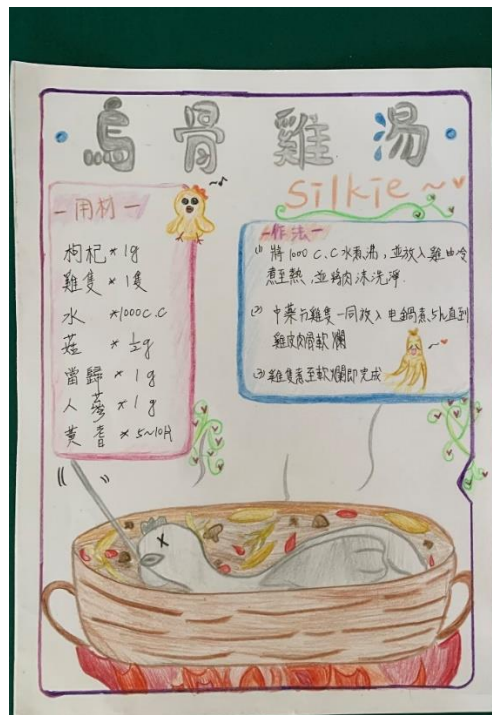 烏骨雞湯
silkie~
用材
枸杞 * 1g
雞隻 * 1隻
水 *1000c.c
菇 * ½g
當歸 * 1g
人蔘 * 1g
黃耆 * 5~10片
作法
(1) 將1000 c.c水煮沸,並放入雞由冷
煮至熱,並將肉沫洗淨.
(2) 中藥方雞隻一同放入电鍋煮.5h直到
雞皮肉骨軟爛
(3) 雞隻煮至軟爛即完成